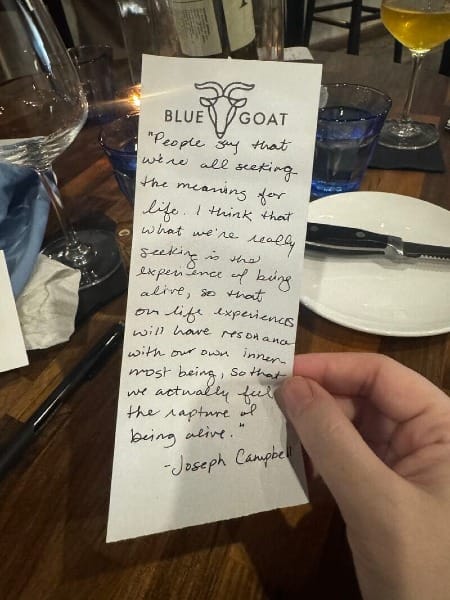 BLUE GOAT
"People say that
we're all seeking
the meaning for
life. I think that
what we're really
seeking is the
experience of being
alive, so that
our life experiences
will have resonance
with our own inner-
most being, so that
we actually feel
the rapture of
being alive."
-Joseph Campbell